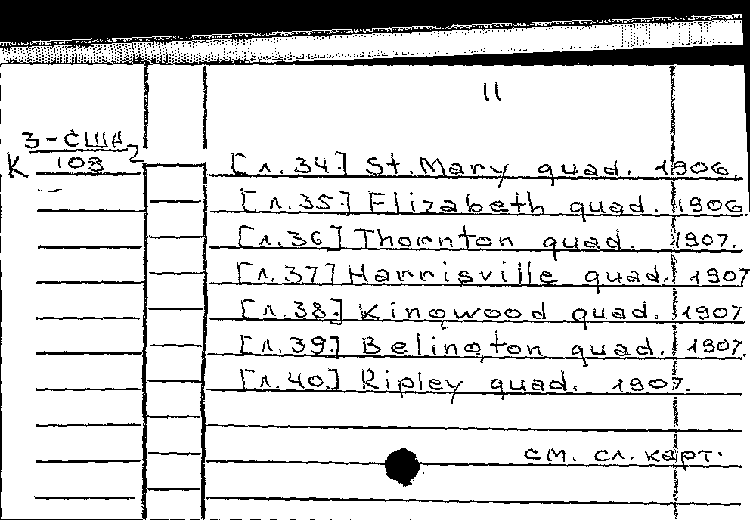 11
3-США
К 103
[л.34.] St. Mary quad. 1906.
[л.35] Elizabeth quad. 1906.
[л.36] Thornton quad. 1907.
[л.37] Harrisville quad. 1907
[л.38.] Kingwood quad. 1907
[л.39.] Belington quad. 1907.
[л.40.] Ripley quad. 1907.
см. сл. карт.